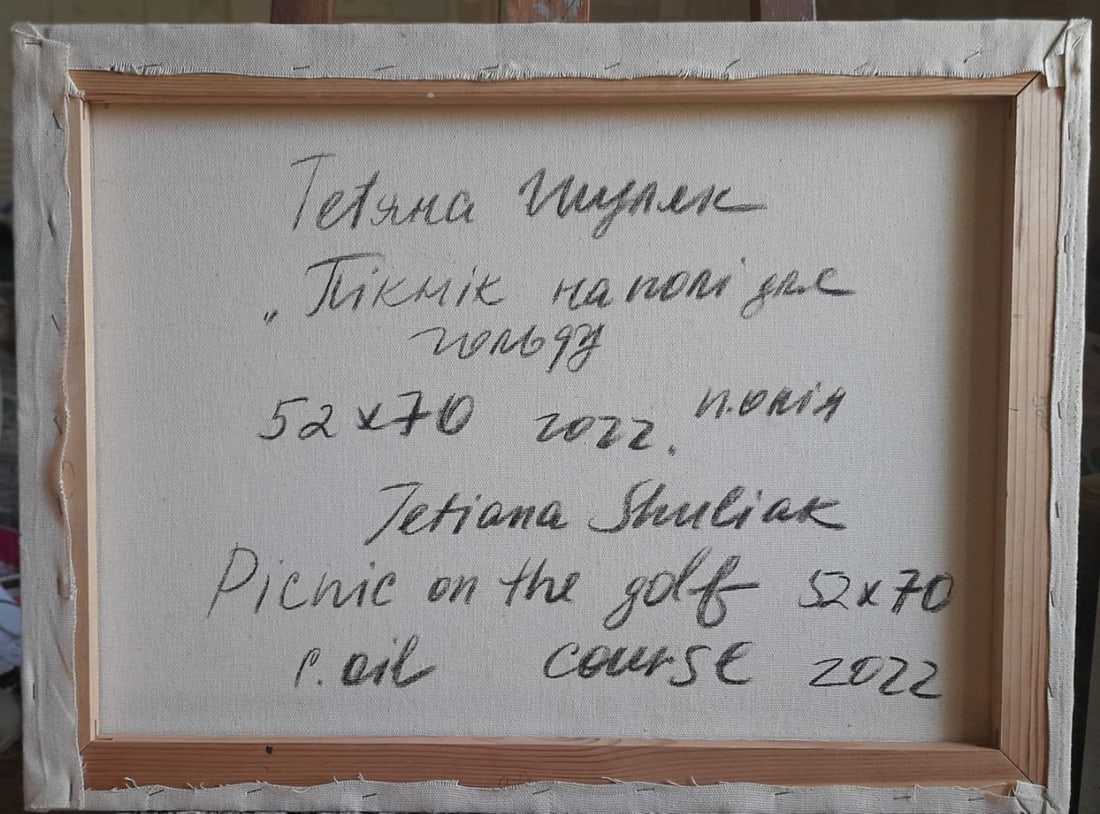 Тетяна Шуляк
„Пікнік на полі для
гольфу
52x70 2022. п.олія
Tetiana Shuliak
Picnic on the golf 52x70
c. oil course 2022